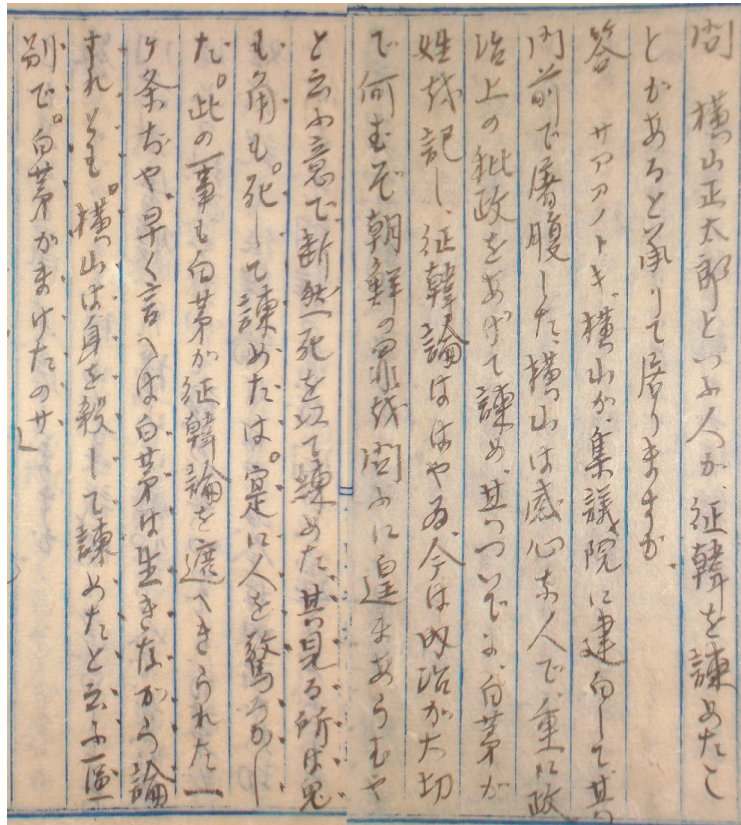 問　横山正太郎といふ人が、征韓を諫めたこ
とがあると承りて居りますが、
答　サアアノトキ、横山が、集議院に建白して其の
門前で屠腹した、横山は感心な人で、重に政
治上の秕政をあげて諫め、其のついでに、白茅が
姓を記し、征韓論ははや、今は内治が大切
で何むぞ朝鮮の罪を問ふに遑まあらむや
と云ふ意で断然死を以て諫めた、其見る所は兎
も角も。死して諫めたは。寔に人を驚かし
た。此の一事も白茅が征韓論を遮へきられた一
ヶ条ぢや、早く言へは白茅は生きながら論
すれども。横山は身を殺して諫めたと云ふ區
別で。白茅がまけたのサ」